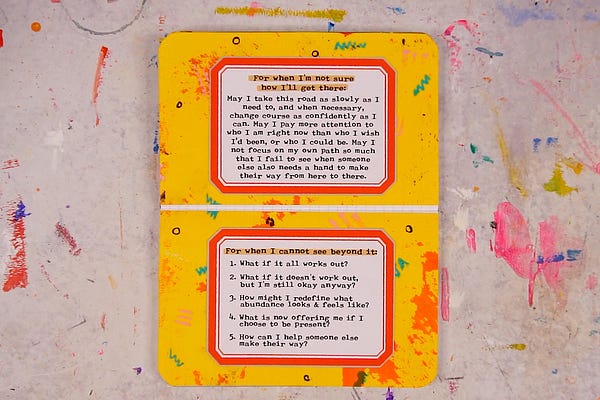 For when I'm not sure
how I'll get there:
May I take this road as slowly as I
need to, and when necessary,
change course as confidently as I
can. May I pay more attention to
who I am right now than who I wish
I'd been, or who I could be. May I
not focus on my own path so much
that I fail to see when someone
else also needs a hand to make
their way from here to there.
For when I cannot see beyond it:
1. What if it all works out?
2. What if it doesn't work out,
but I'm still okay anyway?
3. How might I redefine what
abundance looks & feels like?
4. What is now offering me if I
choose to be present?
5. How can I help someone else
make their way?